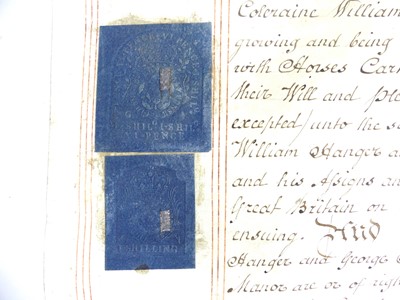 SHILL SHIL
PENCE
SHILLING
Coleraine William
growing and being
with Horses Car
their Will and ple
excepted) unto the s
William Hanger a
and his Assigns an
Great Britain on
ensuing. And
Hanger and George
Manor are or of righ